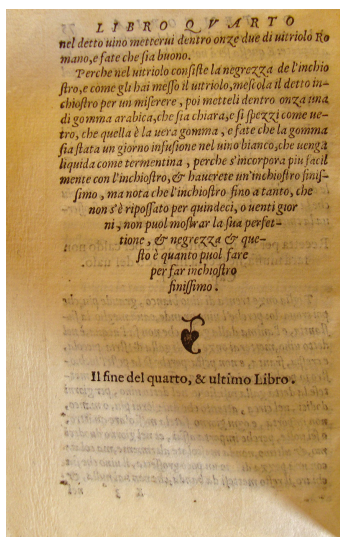 LIBRO QVARTO
nel detto uino metterui dentro onze due di uitriolo Ro
mano, e fate che sia buono.
Perche nel uitriolo consiste la negrezza de l'inchio
stro, e come gli hai messo il uitriolo, mescola il detto in-
chiostro per un miserere, poi metteli dentro onza una
di gomma arabica, che sia chiara, e si spezzi come ue-
tro, che quella è la uera gomma, e fate che la gomma
sia stata un giorno infusione nel uino bianco, che uenga
liquida come termentina, perche s'incorpora piu facil
mente con l'inchiostro, & hauerete un'inchiostro finis-
simo, ma nota che l'inchiostro fino a tanto, che
non s'è ripossato per quindeci, o uenti gior
ni, non puol mostrar la sua perfet-
tione, & negrezza & que-
sto è quanto puol fare
per far inchiostro
finissimo.
Il fine del quarto, & ultimo Libro.